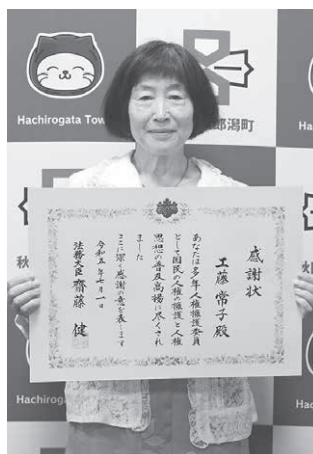 Hachirogata Tow
郎潟町
Ha
秋
感謝状
工藤常子殿
あなたは多年人権擁護委員
として国民の人権の擁護と人権
思想の普及高揚に尽くされ
ました
ここに深く感謝の意を表します
令和五年七月一日
法務大臣 齋藤 健
Hachirog
Ha